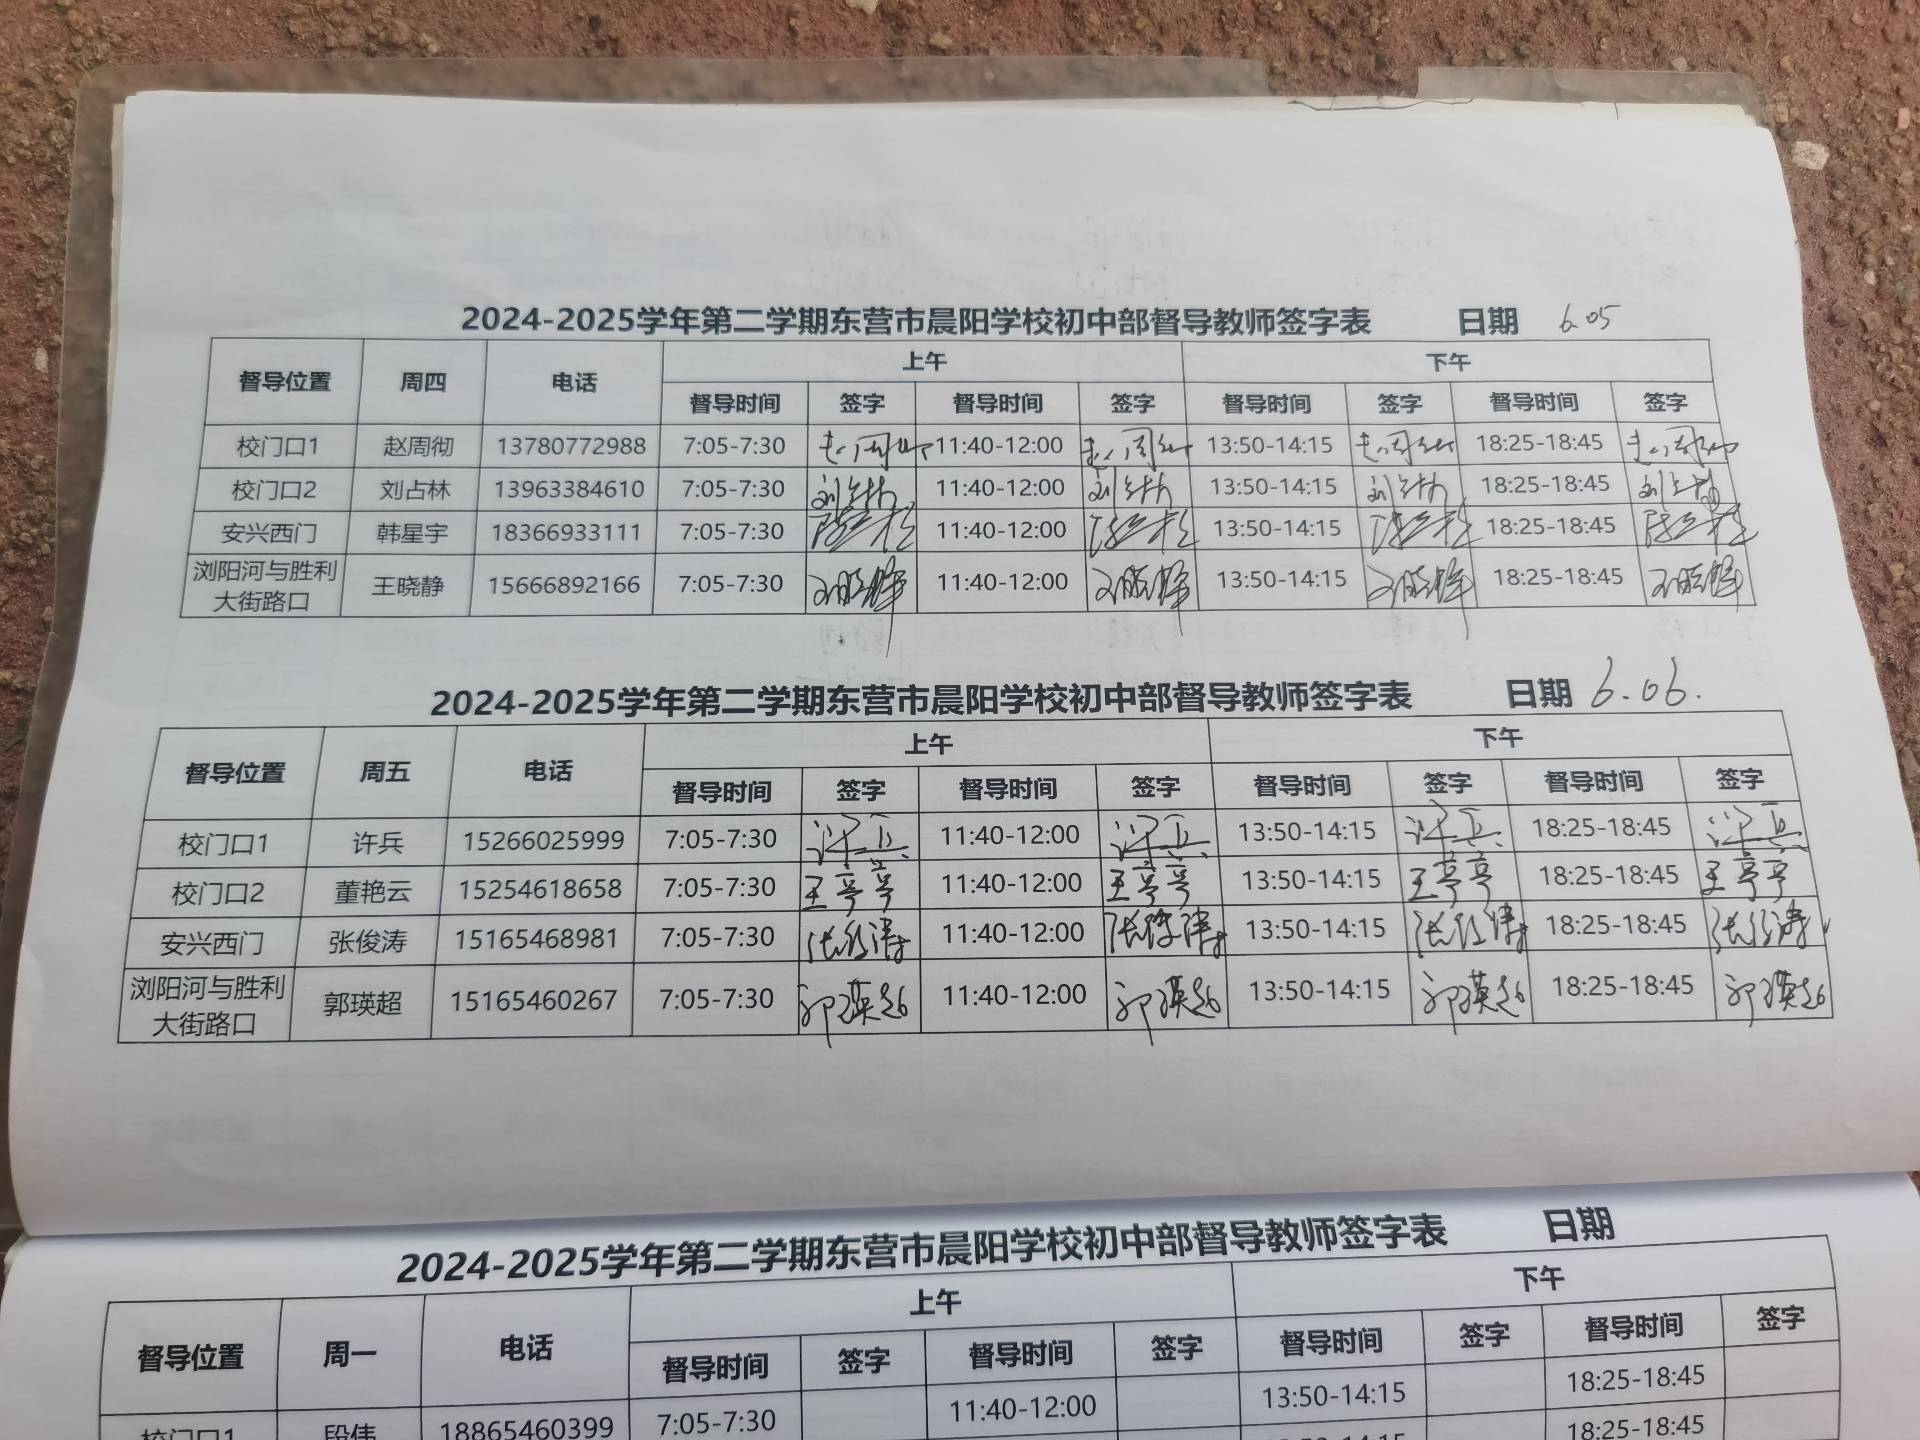 2024-2025学年第二学期东营市晨阳学校初中部督导教师签字表 日期 6.05
督导位置 周四 电话 上午 下午
督导时间 签字 督导时间 签字 督导时间 签字 督导时间 签字
校门口1 赵周彻 13780772988 7:05-7:30 赵周彻 11:40-12:00 赵周彻 13:50-14:15 赵周彻 18:25-18:45 赵周彻
校门口2 刘占林 13963384610 7:05-7:30 刘占林 11:40-12:00 刘占林 13:50-14:15 刘占林 18:25-18:45 刘占林
安兴西门 韩星宇 18366933111 7:05-7:30 11:40-12:00 13:50-14:15 18:25-18:45
浏阳河与胜利
大街路口 王晓静 15666892166 7:05-7:30 11:40-12:00 13:50-14:15 18:25-18:45
2024-2025学年第二学期东营市晨阳学校初中部督导教师签字表 日期 6.06.
督导位置 周五 电话 上午 下午
督导时间 签字 督导时间 签字 督导时间 签字 督导时间 签字
校门口1 许兵 15266025999 7:05-7:30 许兵 11:40-12:00 许兵 13:50-14:15 许兵 18:25-18:45 许兵
校门口2 董艳云 15254618658 7:05-7:30 王亭亭 11:40-12:00 王亭亭 13:50-14:15 王亭亭 18:25-18:45 王亭亭
安兴西门 张俊涛 15165468981 7:05-7:30 张俊涛 11:40-12:00 张俊涛 13:50-14:15 张俊涛 18:25-18:45 张俊涛
浏阳河与胜利
大街路口 郭瑛超 15165460267 7:05-7:30 郭瑛超 11:40-12:00 郭瑛超 13:50-14:15 郭瑛超 18:25-18:45 郭瑛超
2024-2025学年第二学期东营市晨阳学校初中部督导教师签字表 日期
督导位置 周一 电话 上午 下午
督导时间 签字 督导时间 签字 督导时间 签字 督导时间 签字
校门口1 段伟 18865460399 7:05-7:30 11:40-12:00 13:50-14:15 18:25-18:45
18:25-18:45